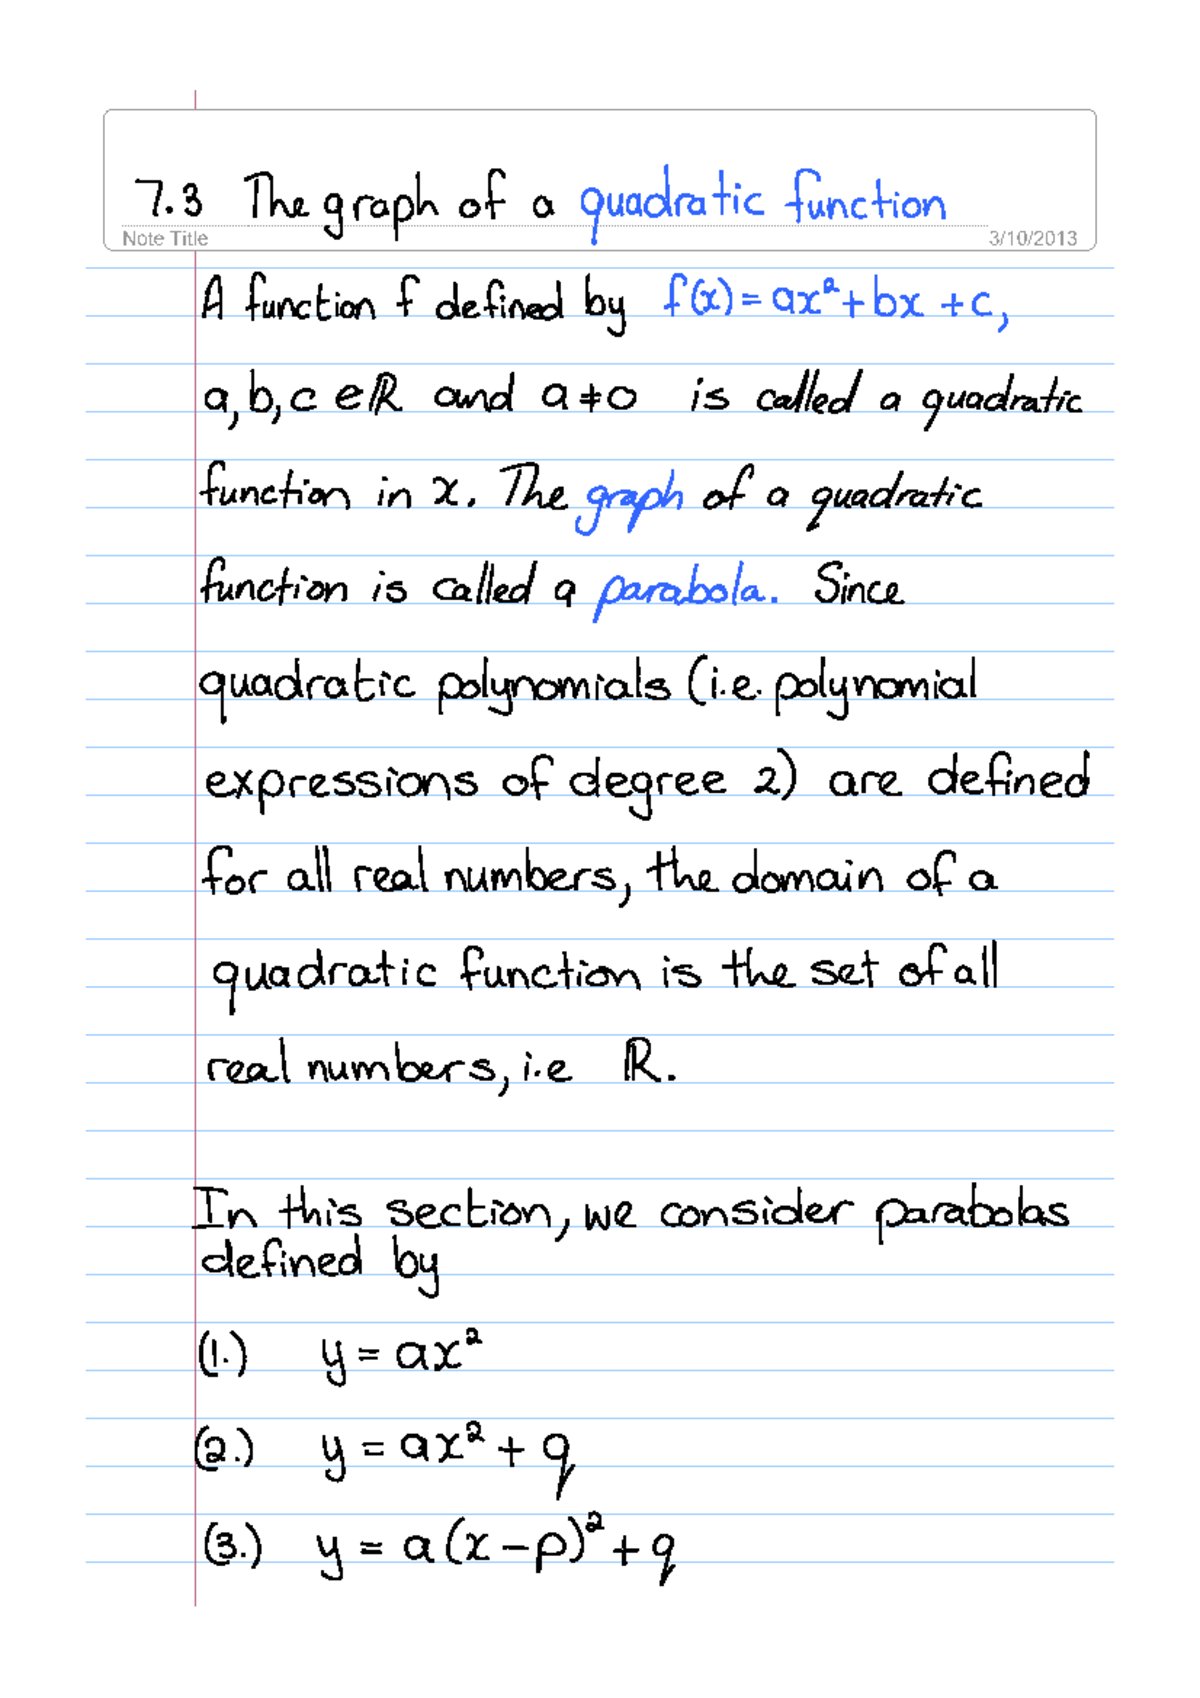 7.3 The graph of a quadratic function
Note Title 3/10/2013
A function f defined by f(x) = ax² + bx + c,
a, b, c ∈ ℝ and a ≠ 0 is called a quadratic
function in x. The graph of a quadratic
function is called a parabola. Since
quadratic polynomials (i.e. polynomial
expressions of degree 2) are defined
for all real numbers, the domain of a
quadratic function is the set of all
real numbers, i.e ℝ.
In this section, we consider parabolas
defined by
(1.) y = ax²
(2.) y = ax² + q
(3.) y = a(x - p)² + q